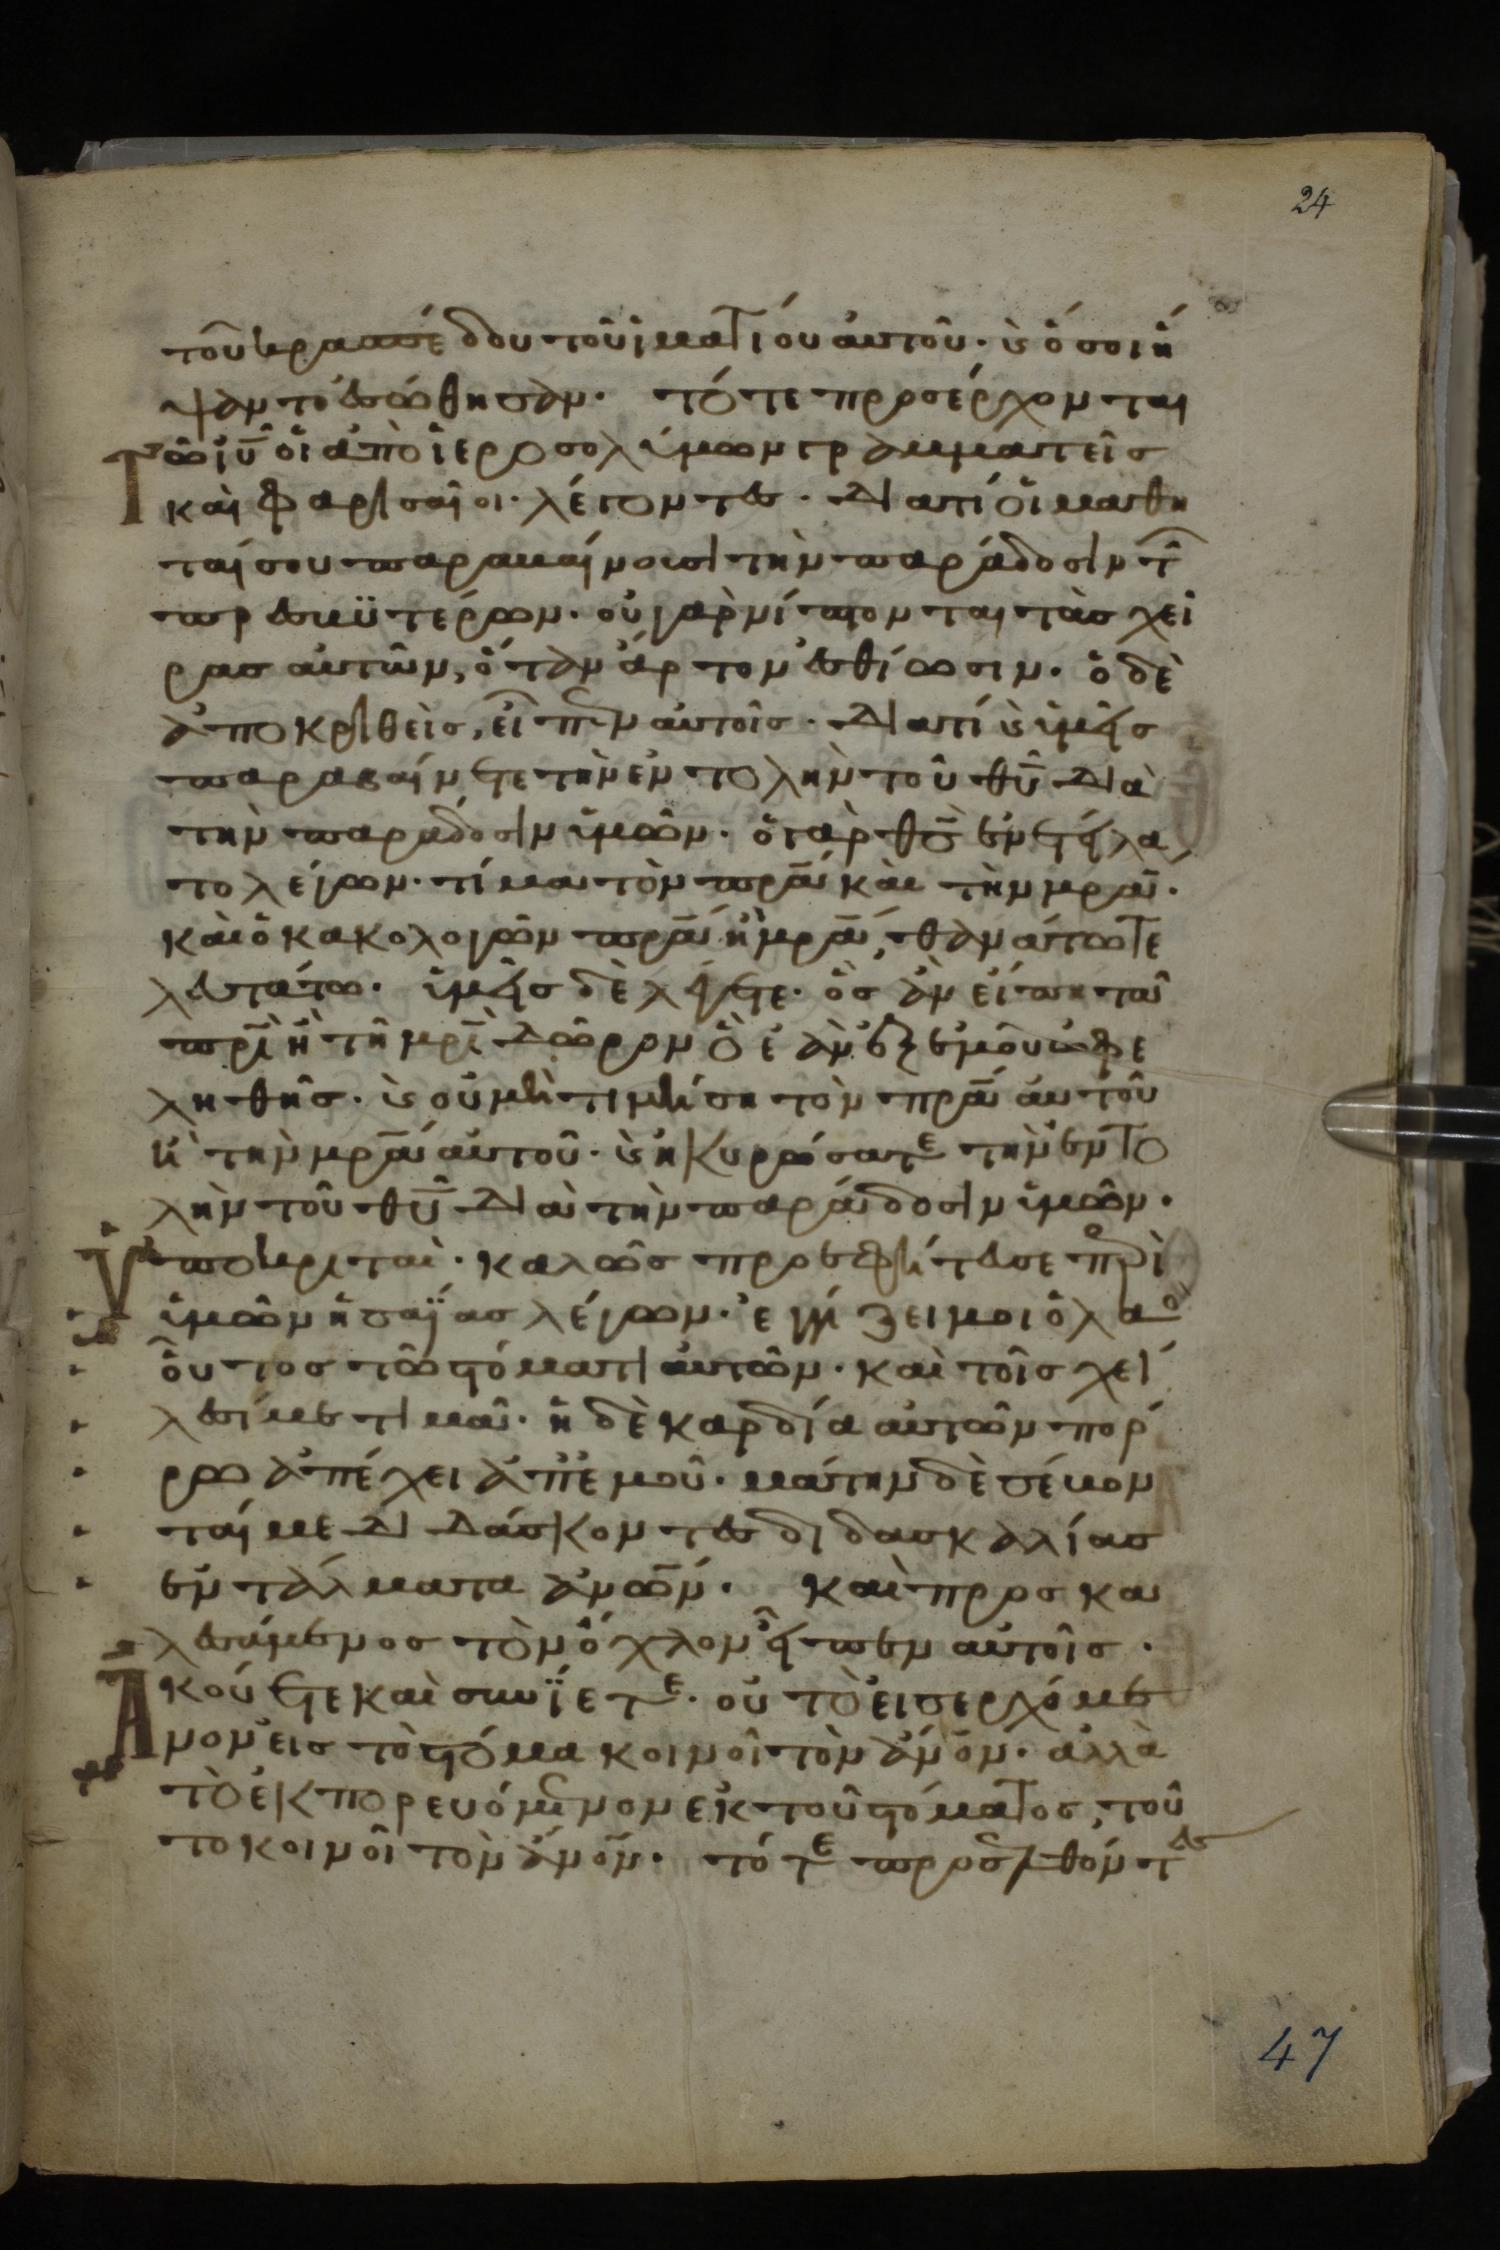 24
τοῦ κρασπέδου τοῦ ἱματίου αὐτοῦ· ϗ ὅσοι ἥ
ψαντο ἐσώθησαν· τότε προσέρχονται
Τῶ ἰῦ οἱ ἀπὸ ἱεροσολύμων γραμματεῖς
καὶ φαρισαῖοι· λέγοντες· Διατί οἱ μαθη
ταί σου παραβαίνουσι τὴν παράδοσιν τῶ
πρεσβυτέρων· οὐ γὰρ νίπτονται τὰς χεῖ
ρας αὐτῶν, ὅταν ἄρτον ἐσθίωσιν· ὁ δὲ
ἀποκριθεὶς, εἶπεν αὐτοῖς· Διατί ϗ ὑμεῖς
παραβαίνετε τὴν ἐντολὴν τοῦ θῦ Διὰ
τὴν παράδοσιν ὑμῶν· ὁ γὰρ θς ἐνετείλα
το λέγων· τίμα τὸν πρᾶ καὶ τὴν μρᾶ·
καὶ ὁ κακολογῶν πρᾶ ἢ μρᾶ, θανάτω τε
λευτάτω· ὑμεῖς δὲ λέγετε· ὃς ἂν εἴπη τῶ
πρὶ ἢ τῆ μρὶ Δῶρον ὃ ἐὰν ἐξ ἐμοῦ ὠφε
ληθῆς· ϗ οὐ μὴ τιμήση τὸν πρᾶ αὐτοῦ
ἢ τὴν μρᾶ αὐτοῦ· ϗ ἠκυρώσατε τὴν ἐντο
λὴν τοῦ θῦ Διὰ τὴν παράδοσιν ὑμῶν·
Ὑποκριταὶ· καλῶς προεφήτευσε περὶ
ὑμῶν ἠσαΐας λέγων· ἐγγίζει μοι ὁ λαὸ
οὗτος τῶ στόματι αὐτῶν· καὶ τοῖς χεί
λεσί με τιμᾶ· ἡ δὲ καρδία αὐτῶν πόρ
ρω ἀπέχει ἀπ' ἐμοῦ· μάτην δὲ σέβον
ταί με Διδάσκοντες διδασκαλίας
ἐντάλματα ἀνῶν· καὶ προσκα
λεσάμενος τὸν ὄχλον εἶπεν αὐτοῖς·
Ἀκούετε καὶ συνΐετε· οὐ τὸ εἰσερχόμε
νον εἰς τὸ στόμα κοινοῖ τὸν ἀνον· ἀλλὰ
τὸ ἐκπορευόμενον ἐκ τοῦ στόματος, τοῦ
το κοινοῖ τὸν ἀνον· τότε προσελθόντες
47